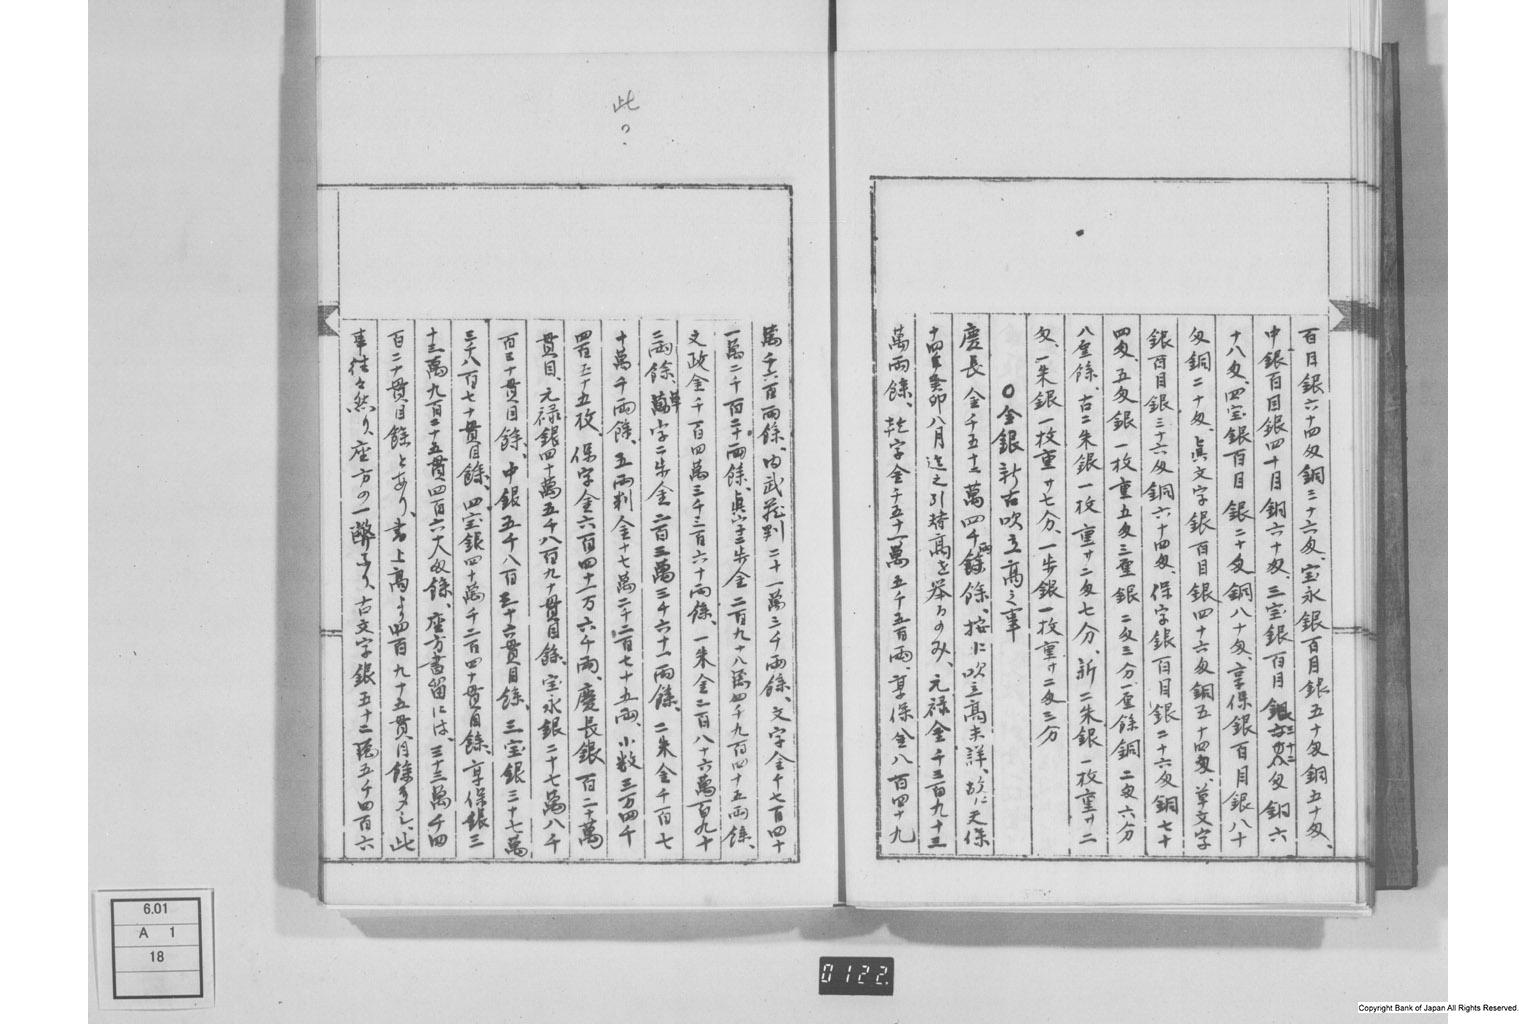 百目銀六十四匁銅三十六匁、宝永銀百目銀五十匁銅五十匁、
中銀百目銀四十目銅六十匁、三宝銀百目銀三十二匁銅六
十八匁、四宝銀百目銀二十匁銅八十匁、享保銀百目銀八十
匁銅二十匁、真文字銀百目銀四十六匁銅五十四匁、草文字
銀百目銀三十六匁銅六十四匁、保字銀百目銀二十六匁銅七十
四匁、五匁銀一枚重五匁三厘銀二匁三分一厘餘銅二匁六分
八厘餘、古二朱銀一枚重廿二匁七分、新二朱銀一枚重廿二
匁、一朱銀一枚重廿七分、一歩銀一枚重廿二匁三分
〇金銀新古吹立高之事
慶長金千五十二萬四千両餘、按に吹立高未詳、故に天保
十四年癸卯八月迄之引替高を挙るのみ、元禄金千三百九十三
萬両餘、乾字金千五十一萬五千五百両、享保金八百四十九
萬千六百両餘、内武蔵判二十一萬三千両餘、文字金千七百四十
一萬二千百二十両餘、真字二歩金二百九十八萬四千九百四十五両餘、
文政金千百四萬三千三百六十両餘、一朱金二百八十六萬百九十
二両餘、草字二朱金二百三萬三千六十一両餘、二朱金千百七
十萬千両餘、五両判金十七萬二千二百七十五両、小数三万四千
四百五十五枚、保字金六百四十一万六千両、慶長銀百二十萬
貫目、元禄銀四十萬五千八百九十貫目餘、宝永銀二十七萬八千
百三十貫目餘、中銀五千八百三十六貫目餘、三宝銀三十七萬
三千八百七十貫目餘、四宝銀四十萬千二百四十貫目餘、享保銀三
十三萬九百二十五貫四百六十八匁餘、座方書留には、三十三萬千四
百二十貫目餘とあり、書上高より四百九十五貫目餘多し、此
事往々然り、座方の一弊なり、古文字銀五十二萬五千四百六
此?
6.01
A 1
18
0122.
Copyright Bank of Japan All Rights Reserved.